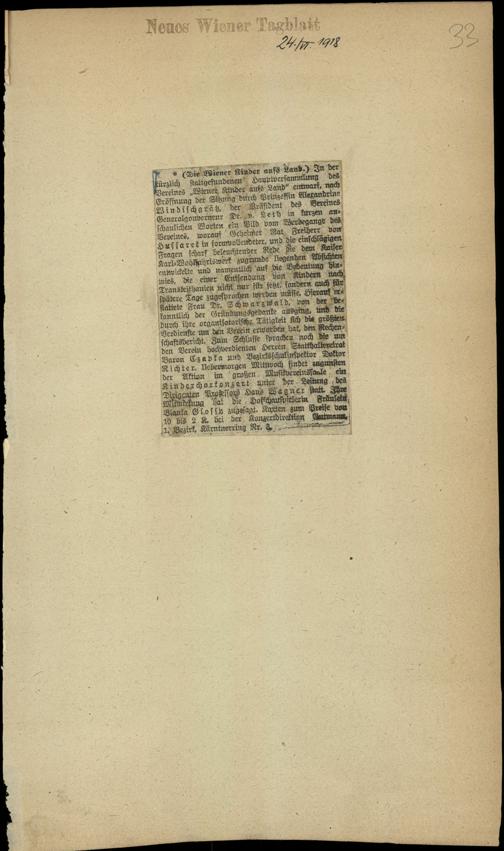 Neues Wiener Tagblatt
24./VI. 1918
33
* (Die Wiener Kinder aufs Land.) In der
kürzlich stattgefundenen Hauptversammlung des
Vereines „Wiener Kinder aufs Land“ entwarf, nach
Eröffnung der Sitzung durch Prinzessin Alexandrine
Windischgrätz, der Präsident des Vereines
Generalgouverneur Dr. v. Leth in kurzen an-
schaulichen Worten ein Bild vom Werdegange des
Vereines, worauf Geheimer Rat Freiherr von
Hussarek in formvollendeter, und die einschlägigen
Fragen scharf beleuchtender Rede die dem Kaiser
Karl-Wohlfahrtswerk zugrunde liegenden Absichten
entwickelte und namentlich auf die Bedeutung hin-
wies, die einer Entsendung von Kindern nach
Transleithanien nicht nur für jetzt, sondern auch für
spätere Tage zugesprochen werden müsse. Hierauf er-
stattete Frau Dr. Schwarzwald, von der be-
kanntlich der Gründungsgedanke ausging, und die
durch ihre organisatorische Tätigkeit sich die größten
Verdienste um den Verein erworben hat, den Rechen-
schaftsbericht. Zum Schlusse sprachen noch die um
den Verein hochverdienten Herren Statthaltereirat
Baron Czapka und Bezirksschulinspektor Doktor
Richter. Uebermorgen Mittwoch findet zugunsten
der Aktion im großen Musikvereinssaale ein
Kinderchorkonzert unter der Leitung des
Dirigenten Professors Hans Wagner statt. Ihre
Mitwirkung hat die Hofschauspielerin Fräulein
Bianka Glossy zugesagt. Karten zum Preise von
10 bis 2 K. bei der Konzertdirektion Gutmann,
1. Bezirk, Kärntnerring Nr. 3.